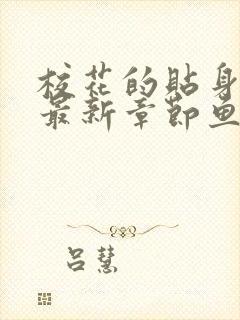 校花的贴身
最新章节鱼
吕慧